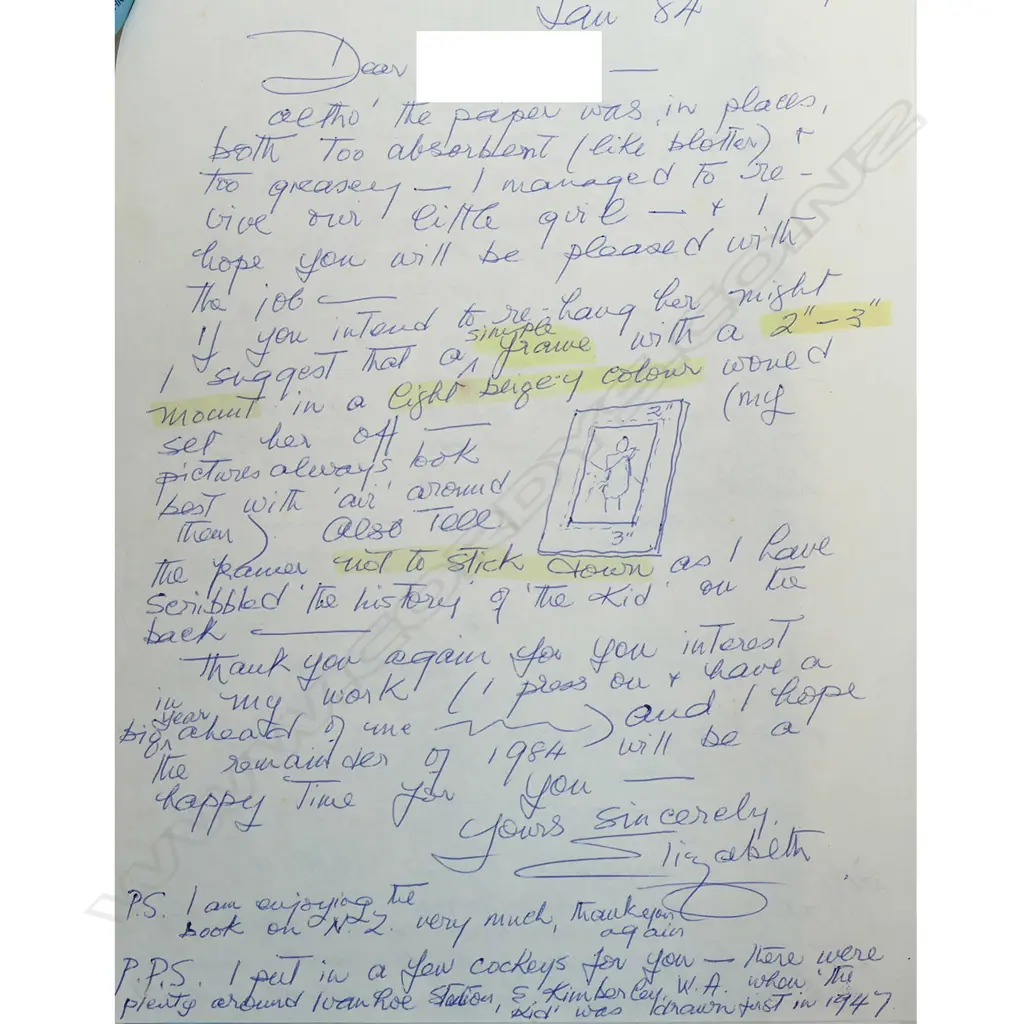 Jan 84
Dear —
altho' the paper was, in places,
both too absorbent (like blotter) +
too greasey — I managed to re-
vive our little girl — + I
hope you will be pleased with
the job —
If you intend to re-hang her might
I suggest that a simple frame with a 2" – 3"
mount in a light beige-y colour would
set her off — (my
pictures always look
best with 'air' around
them). Also Tell
2"
3"
the framer not to stick down as I have
scribbled 'the history' of 'the Kid' on the
back —
Thank you again for you interest
in my work (I press on + have a
big year ahead of me) and I hope
the remainder of 1984 will be a
happy Time for you —
Yours Sincerely,
Elizabeth
P.S. I am enjoying the
book on N.Z. very much, thankyou
again
P.P.S. I put in a few cockeys for you — there were
plenty around Ivanhoe Station, E. Kimberley, W.A. when 'the
Kid' was drawn first in 1947